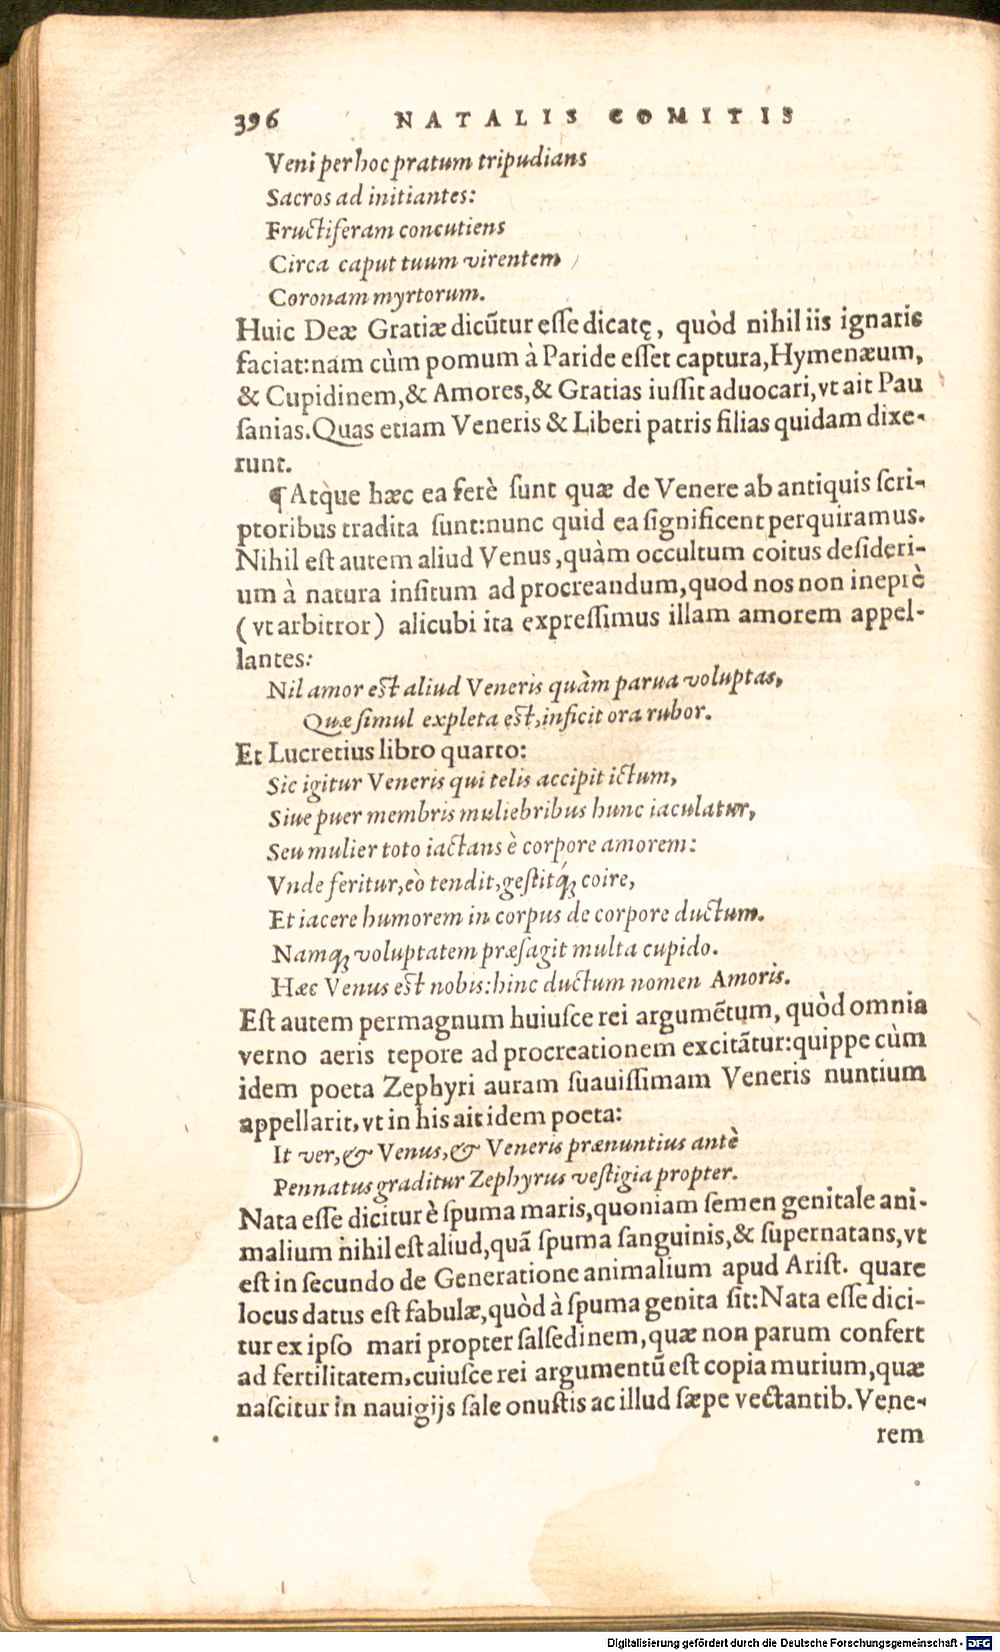 396 NATALIS COMITIS
Veni per hoc pratum tripudians
Sacros ad initiantes:
Fructiferam concutiens
Circa caput tuum virentem
Coronam myrtorum.
Huic Deæ Gratiæ dicũtur eſſe dicatę, quòd nihil iis ignaris
faciat: nam cùm pomum à Paride eſſet captura, Hymenæum,
& Cupidinem, & Amores, & Gratias iuſſit aduocari, vt ait Pau
ſanias. Quas etiam Veneris & Liberi patris filias quidam dixe-
runt.
¶ Atque hæc ea ferè ſunt quæ de Venere ab antiquis ſcri-
ptoribus tradita ſunt: nunc quid ea ſignificent perquiramus.
Nihil eſt autem aliud Venus, quàm occultum coitus deſideri-
um à natura inſitum ad procreandum, quod nos non ineptè
(vt arbitror) alicubi ita expreſſimus illam amorem appel-
lantes:
Nil amor eſt aliud Veneris quàm parua voluptas,
Quæ ſimul expleta eſt, inficit ora rubor.
Et Lucretius libro quarto:
Sic igitur Veneris qui telis accipit ictum,
Siue puer membris muliebribus hunc iaculatur,
Seu mulier toto iactans è corpore amorem:
Vnde feritur, eò tendit, geſtitq́; coire,
Et iacere humorem in corpus de corpore ductum.
Namq; voluptatem præſagit multa cupido.
Hæc Venus eſt nobis: hinc ductum nomen Amoris.
Eſt autem permagnum huiuſce rei argumẽtum, quòd omnia
verno aeris tepore ad procreationem excitãtur: quippe cùm
idem poeta Zephyri auram ſuauiſſimam Veneris nuntium
appellarit, vt in his ait idem poeta:
It ver, & Venus, & Veneris prænuntius antè
Pennatus graditur Zephyrus veſtigia propter.
Nata eſſe dicitur è ſpuma maris, quoniam ſemen genitale ani-
malium nihil eſt aliud, quã ſpuma ſanguinis, & ſupernatans, vt
eſt in ſecundo de Generatione animalium apud Ariſt. quare
locus datus eſt fabulæ, quòd à ſpuma genita ſit: Nata eſſe dici-
tur ex ipſo mari propter ſalſedinem, quæ non parum confert
ad fertilitatem, cuiuſce rei argumentũ eſt copia murium, quæ
naſcitur in nauigijs ſale onuſtis ac illud ſæpe vectantib. Vene-
rem
Digitalisierung gefördert durch die Deutsche Forschungsgemeinschaft - DFG